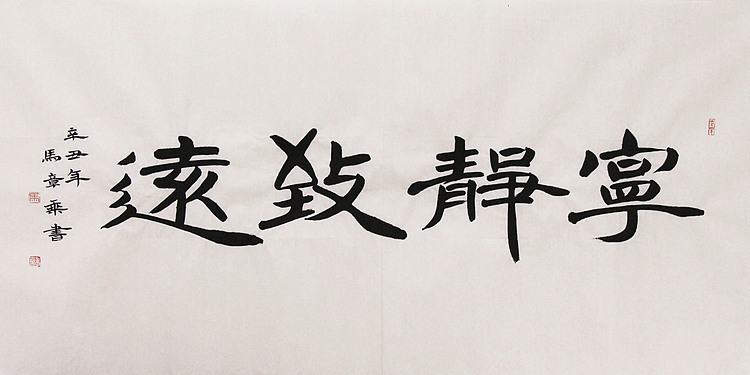 寧靜致遠
辛丑年
馬章乘書